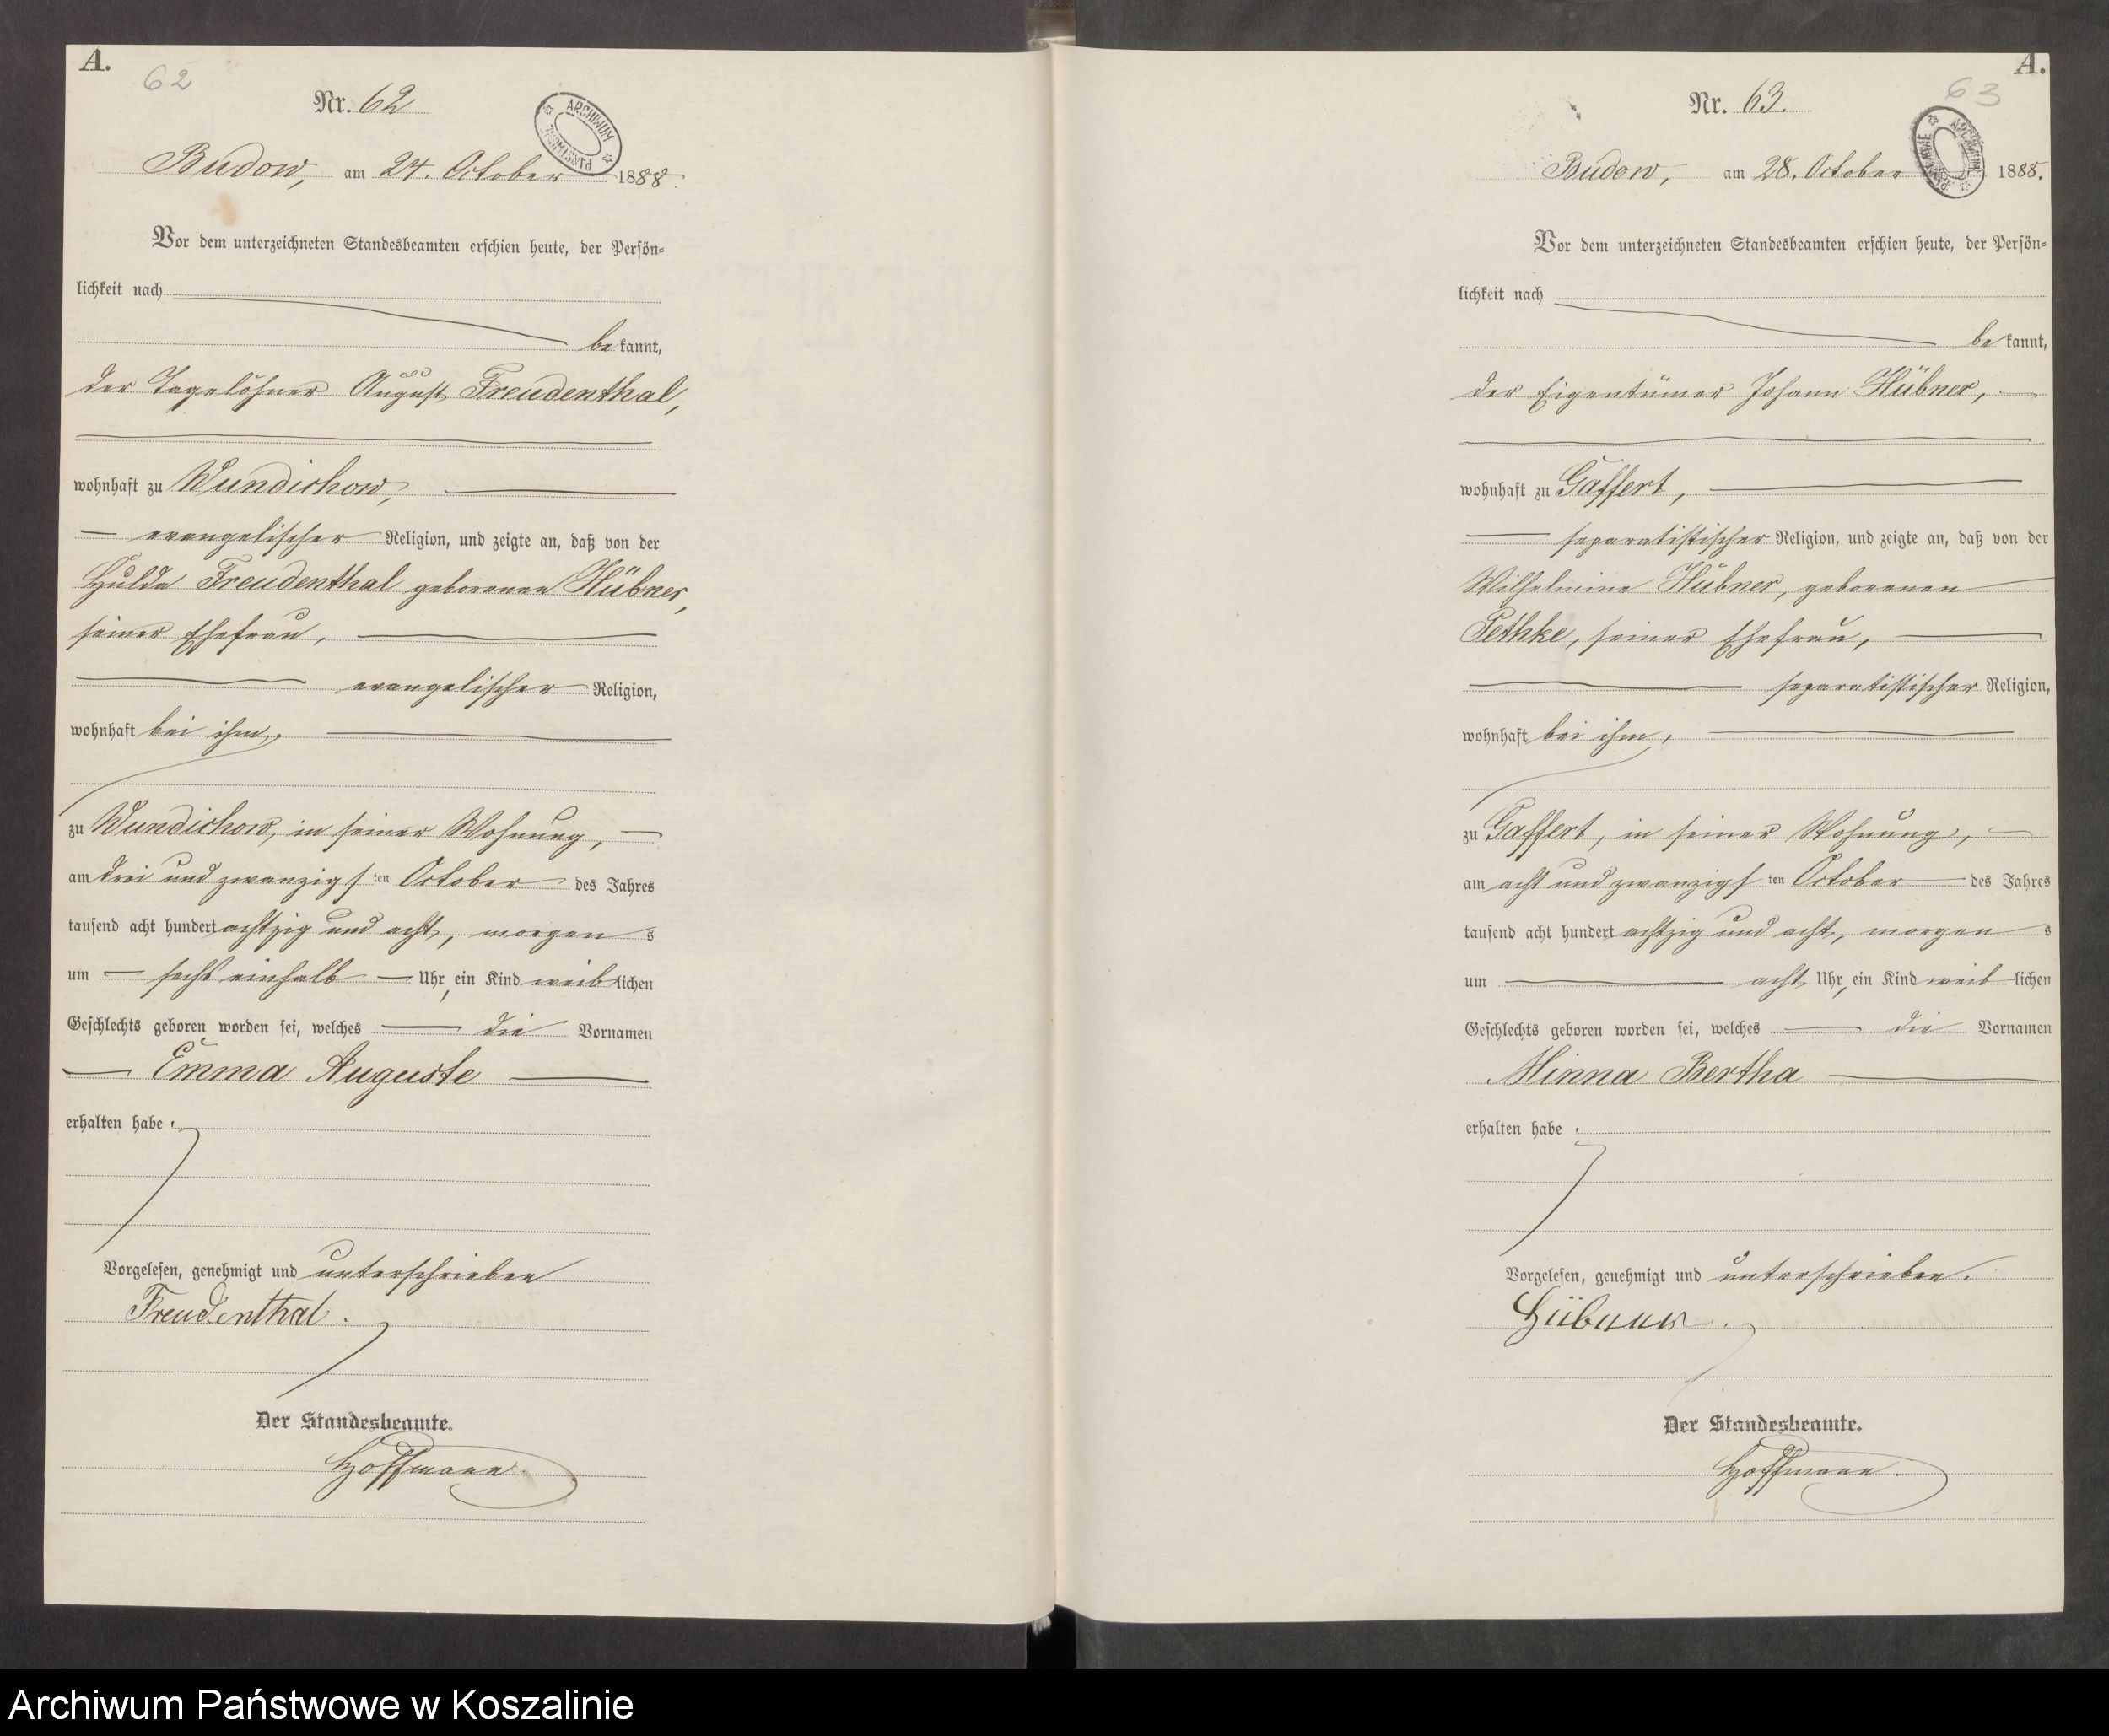 A.
62
Nr. 62
ARCHIWUM PAŃSTWOWE
Budow, am 24. October 1888.
Vor dem unterzeichneten Standesbeamten erschien heute, der Persön-
lichkeit nach
be kannt,
der Tagelöhner August Freudenthal,
wohnhaft zu Wundichow,
evangelischer Religion, und zeigte an, daß von der
Hulda Freudenthal geborenen Hübner,
seiner Ehefrau,
evangelischer Religion,
wohnhaft bei ihm,
zu Wundichow, in seiner Wohnung,
am drei und zwanzigs ten October des Jahres
tausend acht hundert achtzig und acht, morgen s
um sechs einhalb Uhr, ein Kind weib lichen
Geschlechts geboren worden sei, welches die Vornamen
Emma Auguste
erhalten habe.
Vorgelesen, genehmigt und unterschrieben
Freudenthal.
Der Standesbeamte.
Hoffmann.
A.
63
Nr. 63.
ARCHIWUM PAŃSTWOWE
Budow, am 28. October 1888.
Vor dem unterzeichneten Standesbeamten erschien heute, der Persön-
lichkeit nach
be kannt,
der Eigentümer Johann Hübner,
wohnhaft zu Gaffert,
separatistischer Religion, und zeigte an, daß von der
Wilhelmine Hübner, geborenen
Pethke, seiner Ehefrau,
separatistischer Religion,
wohnhaft bei ihm,
zu Gaffert, in seiner Wohnung,
am acht und zwanzigs ten October des Jahres
tausend acht hundert achtzig und acht, morgen s
um acht Uhr, ein Kind weib lichen
Geschlechts geboren worden sei, welches die Vornamen
Minna Bertha
erhalten habe.
Vorgelesen, genehmigt und unterschrieben.
Hübner.
Der Standesbeamte.
Hoffmann.
Archiwum Państwowe w Koszalinie